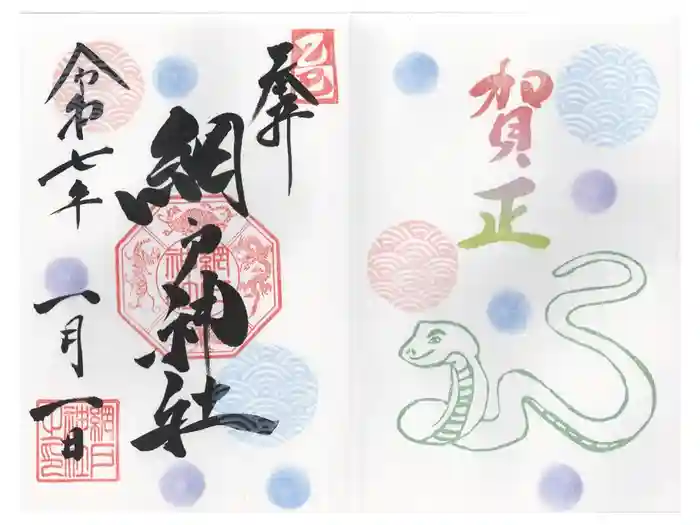 賀正
乙巳
奉拝
網戸神社
令和七年
一月一日
網戸
神社
之印